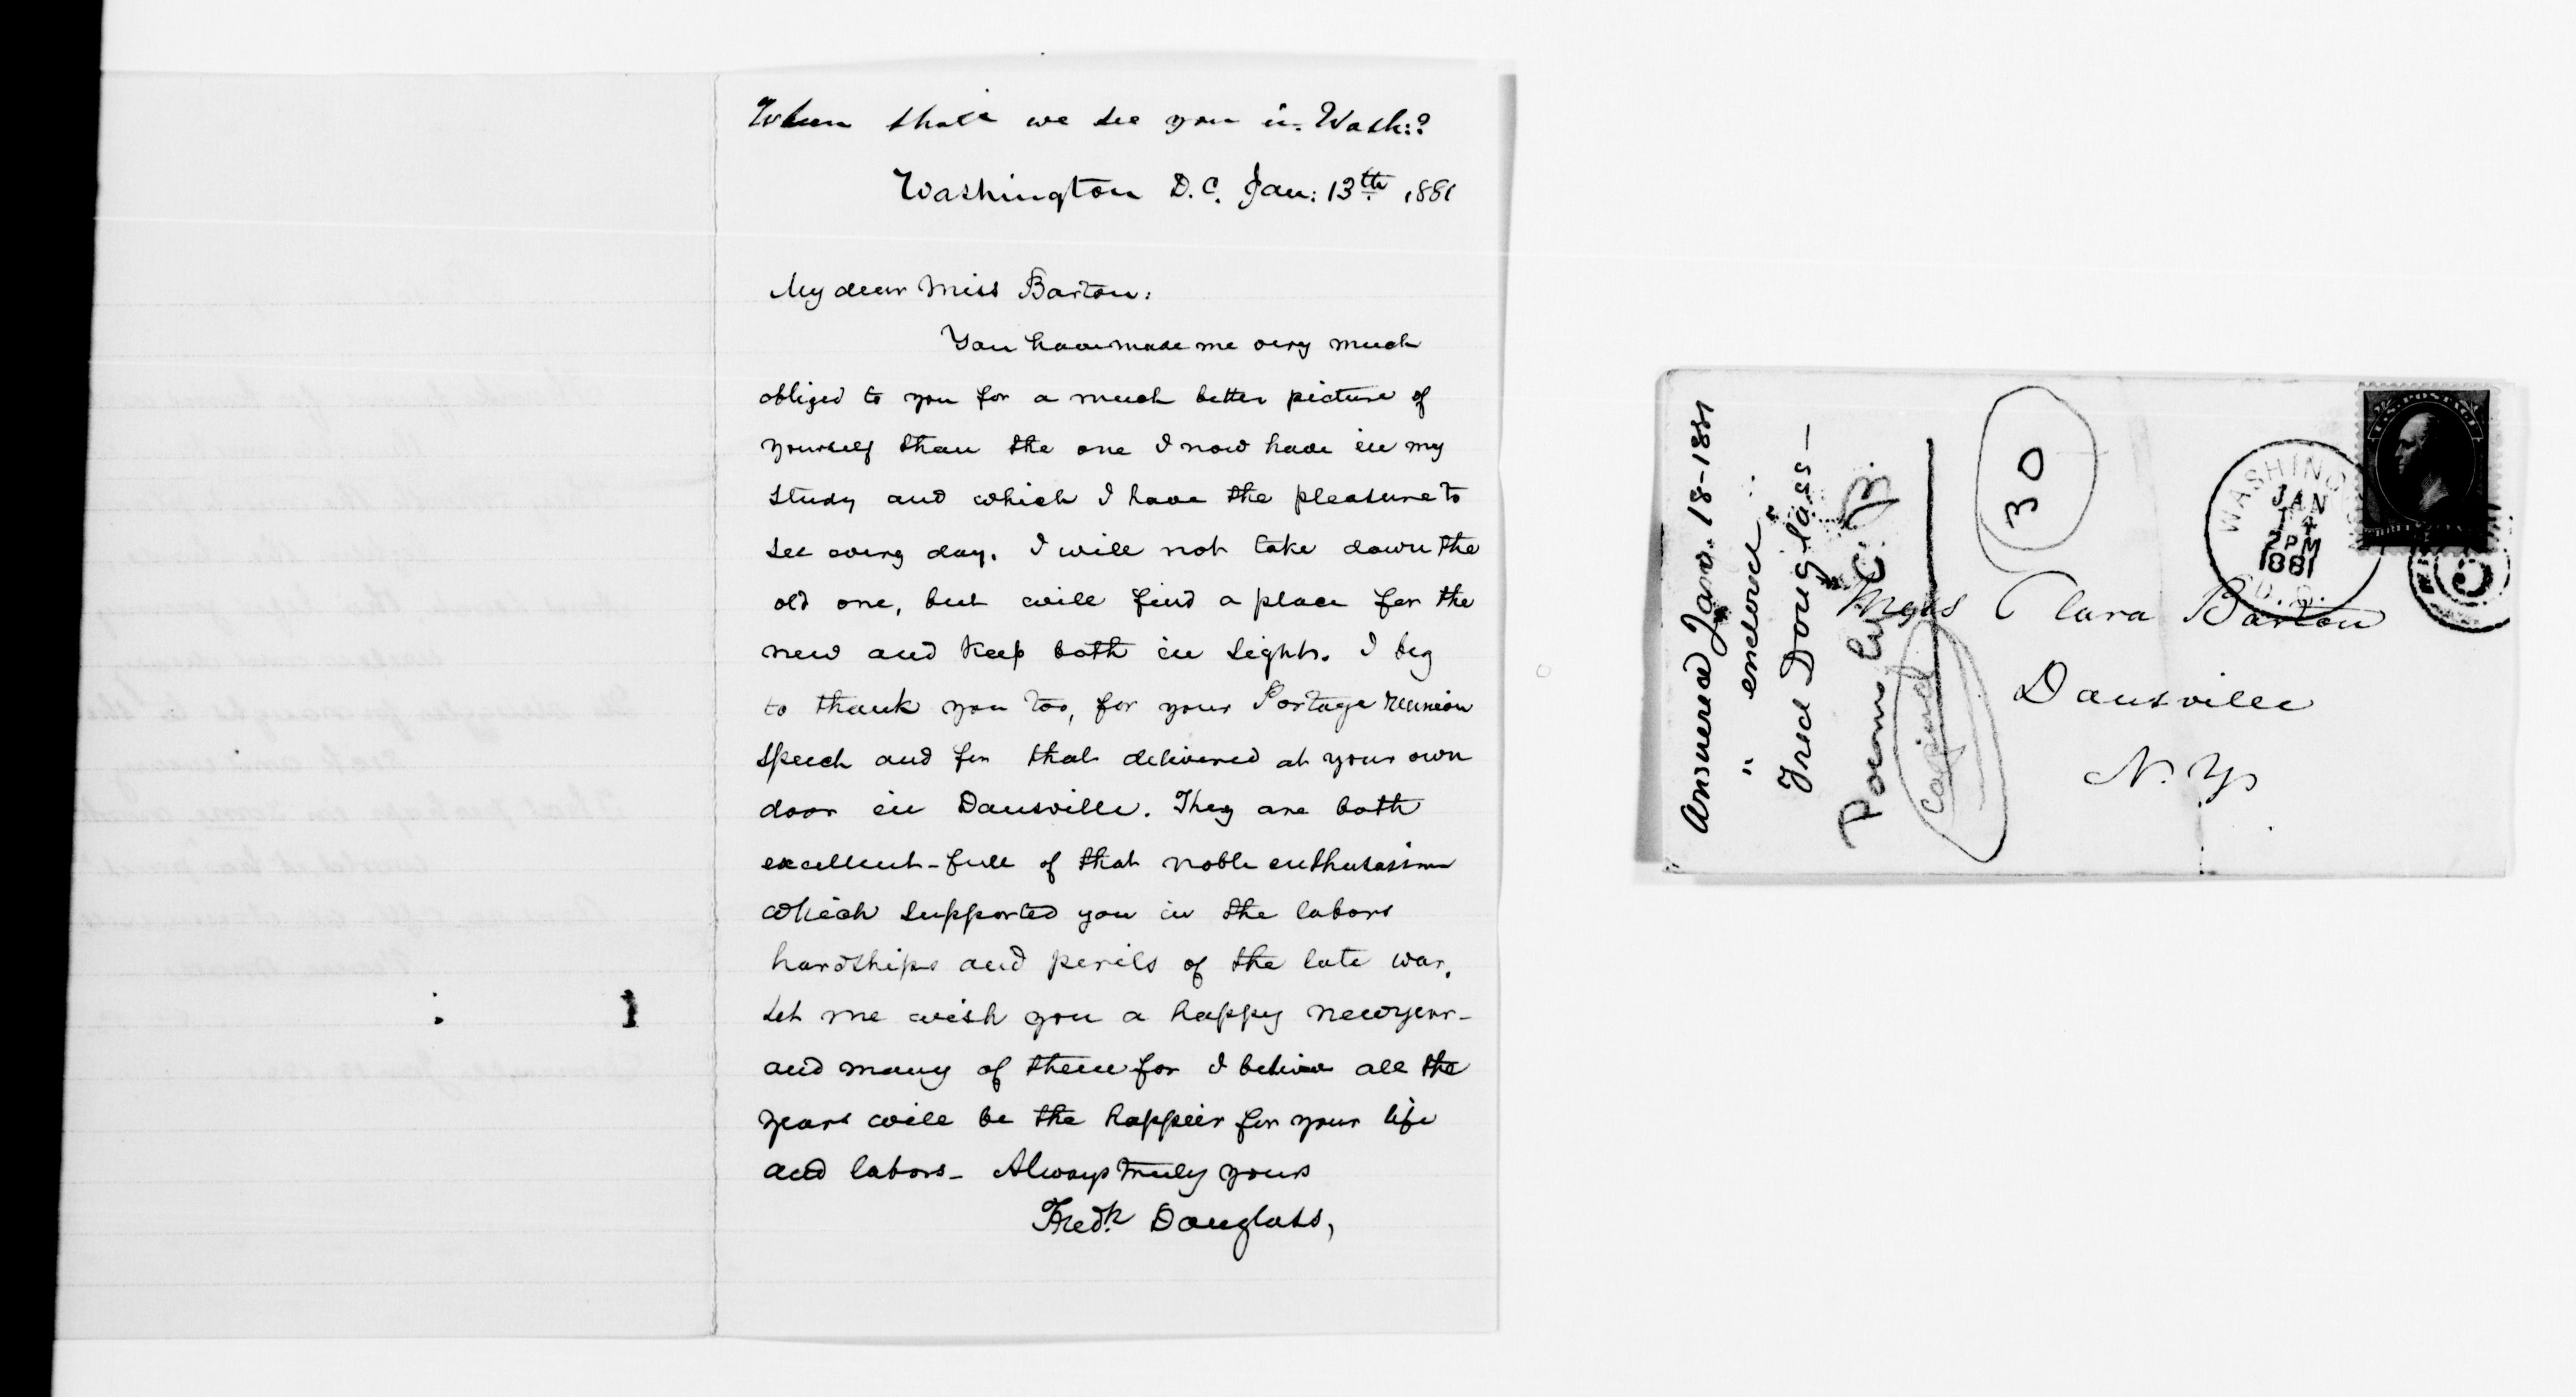 When shall we see you in Wash:?
Washington D.C. Jan: 13th 1881
My dear Miss Barton:
You have made me very much
obliged to you for a much better picture of
yourself than the one I now have in my
study and which I have the pleasure to
see every day. I will not take down the
old one, but will find a place for the
new and keep both in sight. I beg
to thank you too, for your Portage reunion
speech and for that delivered at your own
door in Dansville. They are both
excellent - full of that noble enthusiasm
which supported you in the labors
hardships and perils of the late war.
Let me wish you a happy new year -
and many of them for I believe all the
years will be the happier for your life
and labors - Always truly yours
Fredk Douglass,
Answered Jan. 18-1881
" enclosed
Fred Douglass -
Poems by C. B.
Copied
30
WASHINGTON
JAN
14
2 PM
1881
D.C.
U.S. POSTAGE
Miss Clara Barton
Dansville
N. Y.